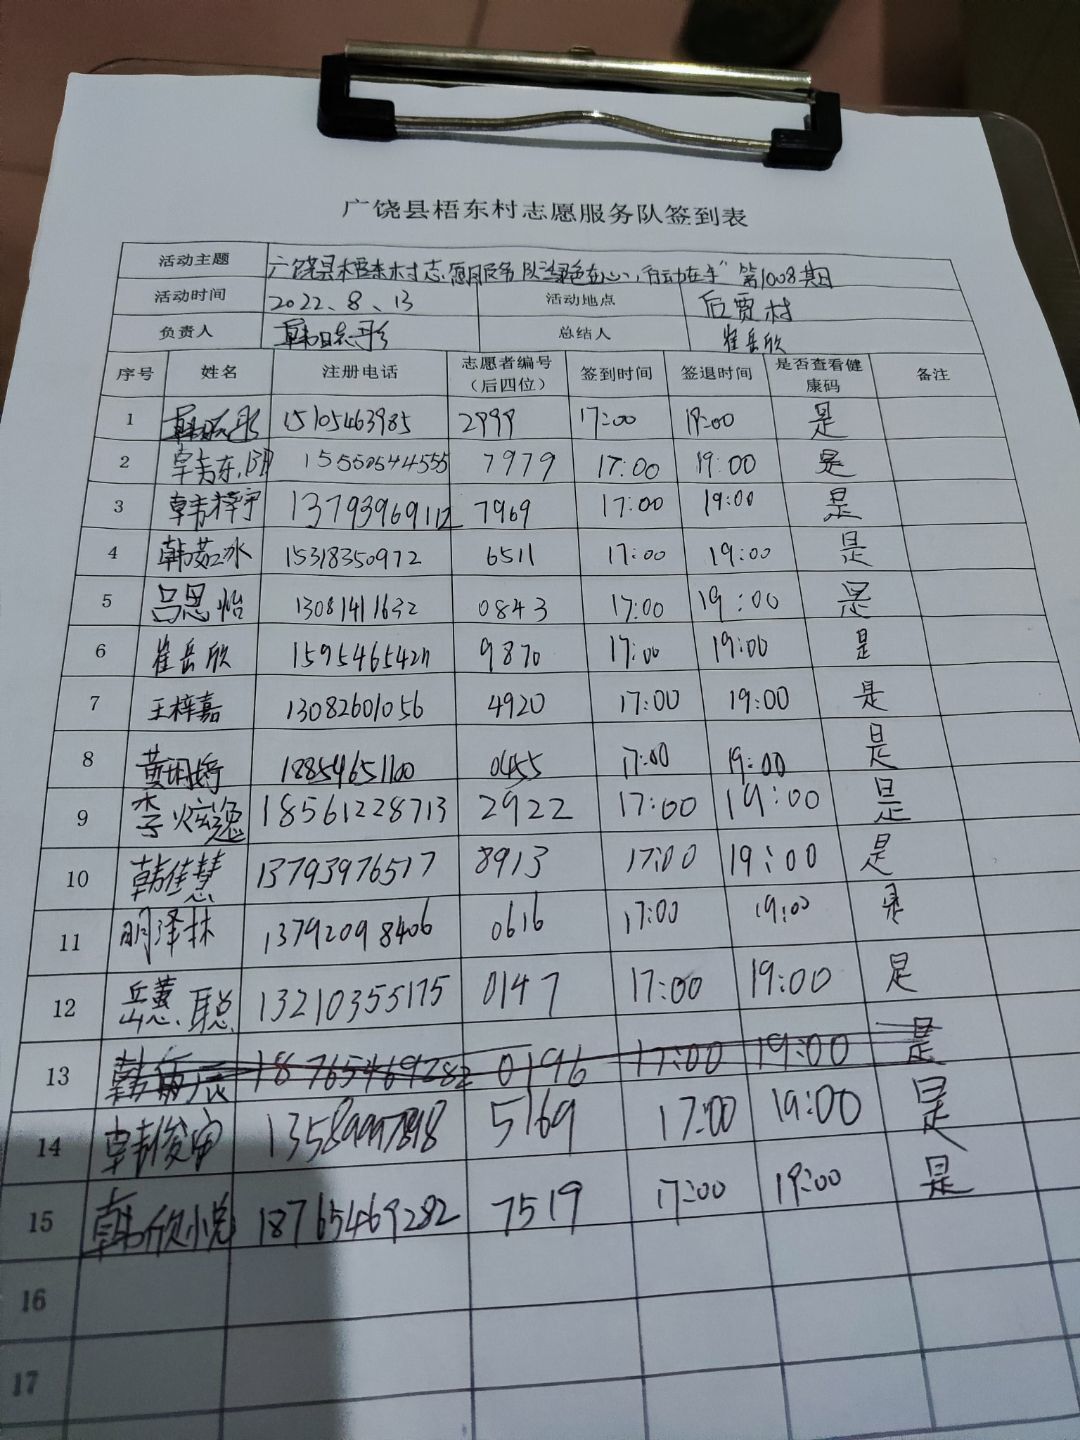 广饶县梧东村志愿服务队签到表
活动主题 广饶县梧东村志愿服务队"绿色在心,行动在手"第1008期
活动时间 2022、8、13 活动地点 后贾村
负责人 韩晓彤 总结人 崔岳欣
序号 姓名 注册电话 志愿者编号(后四位) 签到时间 签退时间 是否查看健康码 备注
1 15105463985 2999 17:00 19:00 是
2 15550544555 7979 17:00 19:00 是
3 韩梓宇 13793969112 7969 17:00 19:00 是
4 韩茹冰 15318350972 6511 17:00 19:00 是
5 吕思怡 13081411632 0843 17:00 19:00 是
6 崔岳欣 9870 17:00 19:00 是
7 王梓嘉 13082601056 4920 17:00 19:00 是
8 18854651100 0455 17:00 19:00 是
9 李炫逸 18561228713 2922 17:00 19:00 是
10 韩佳慧 13793976517 8913 17:00 19:00 是
11 明泽林 13792098406 0616 17:00 19:00 是
12 岳慧聪 13210355175 0147 17:00 19:00 是
13 18765469282 0196 17:00 19:00 是
14 韩俊宇 5169 17:00 19:00 是
15 韩欣悦 18765469282 7519 17:00 19:00 是
16
17